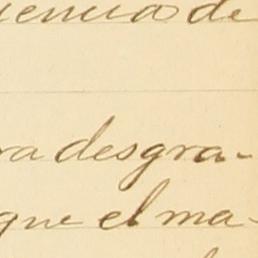 iencia de
ra desgra-
que el ma-